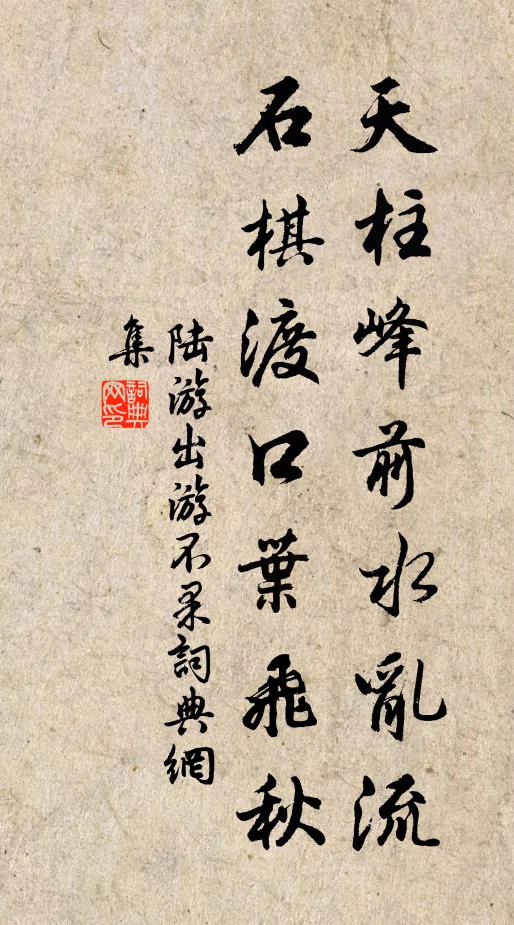 天柱峰前水亂流
石棋渡口葉飛秋
陆游出游不果詞典網
集
詞典網印